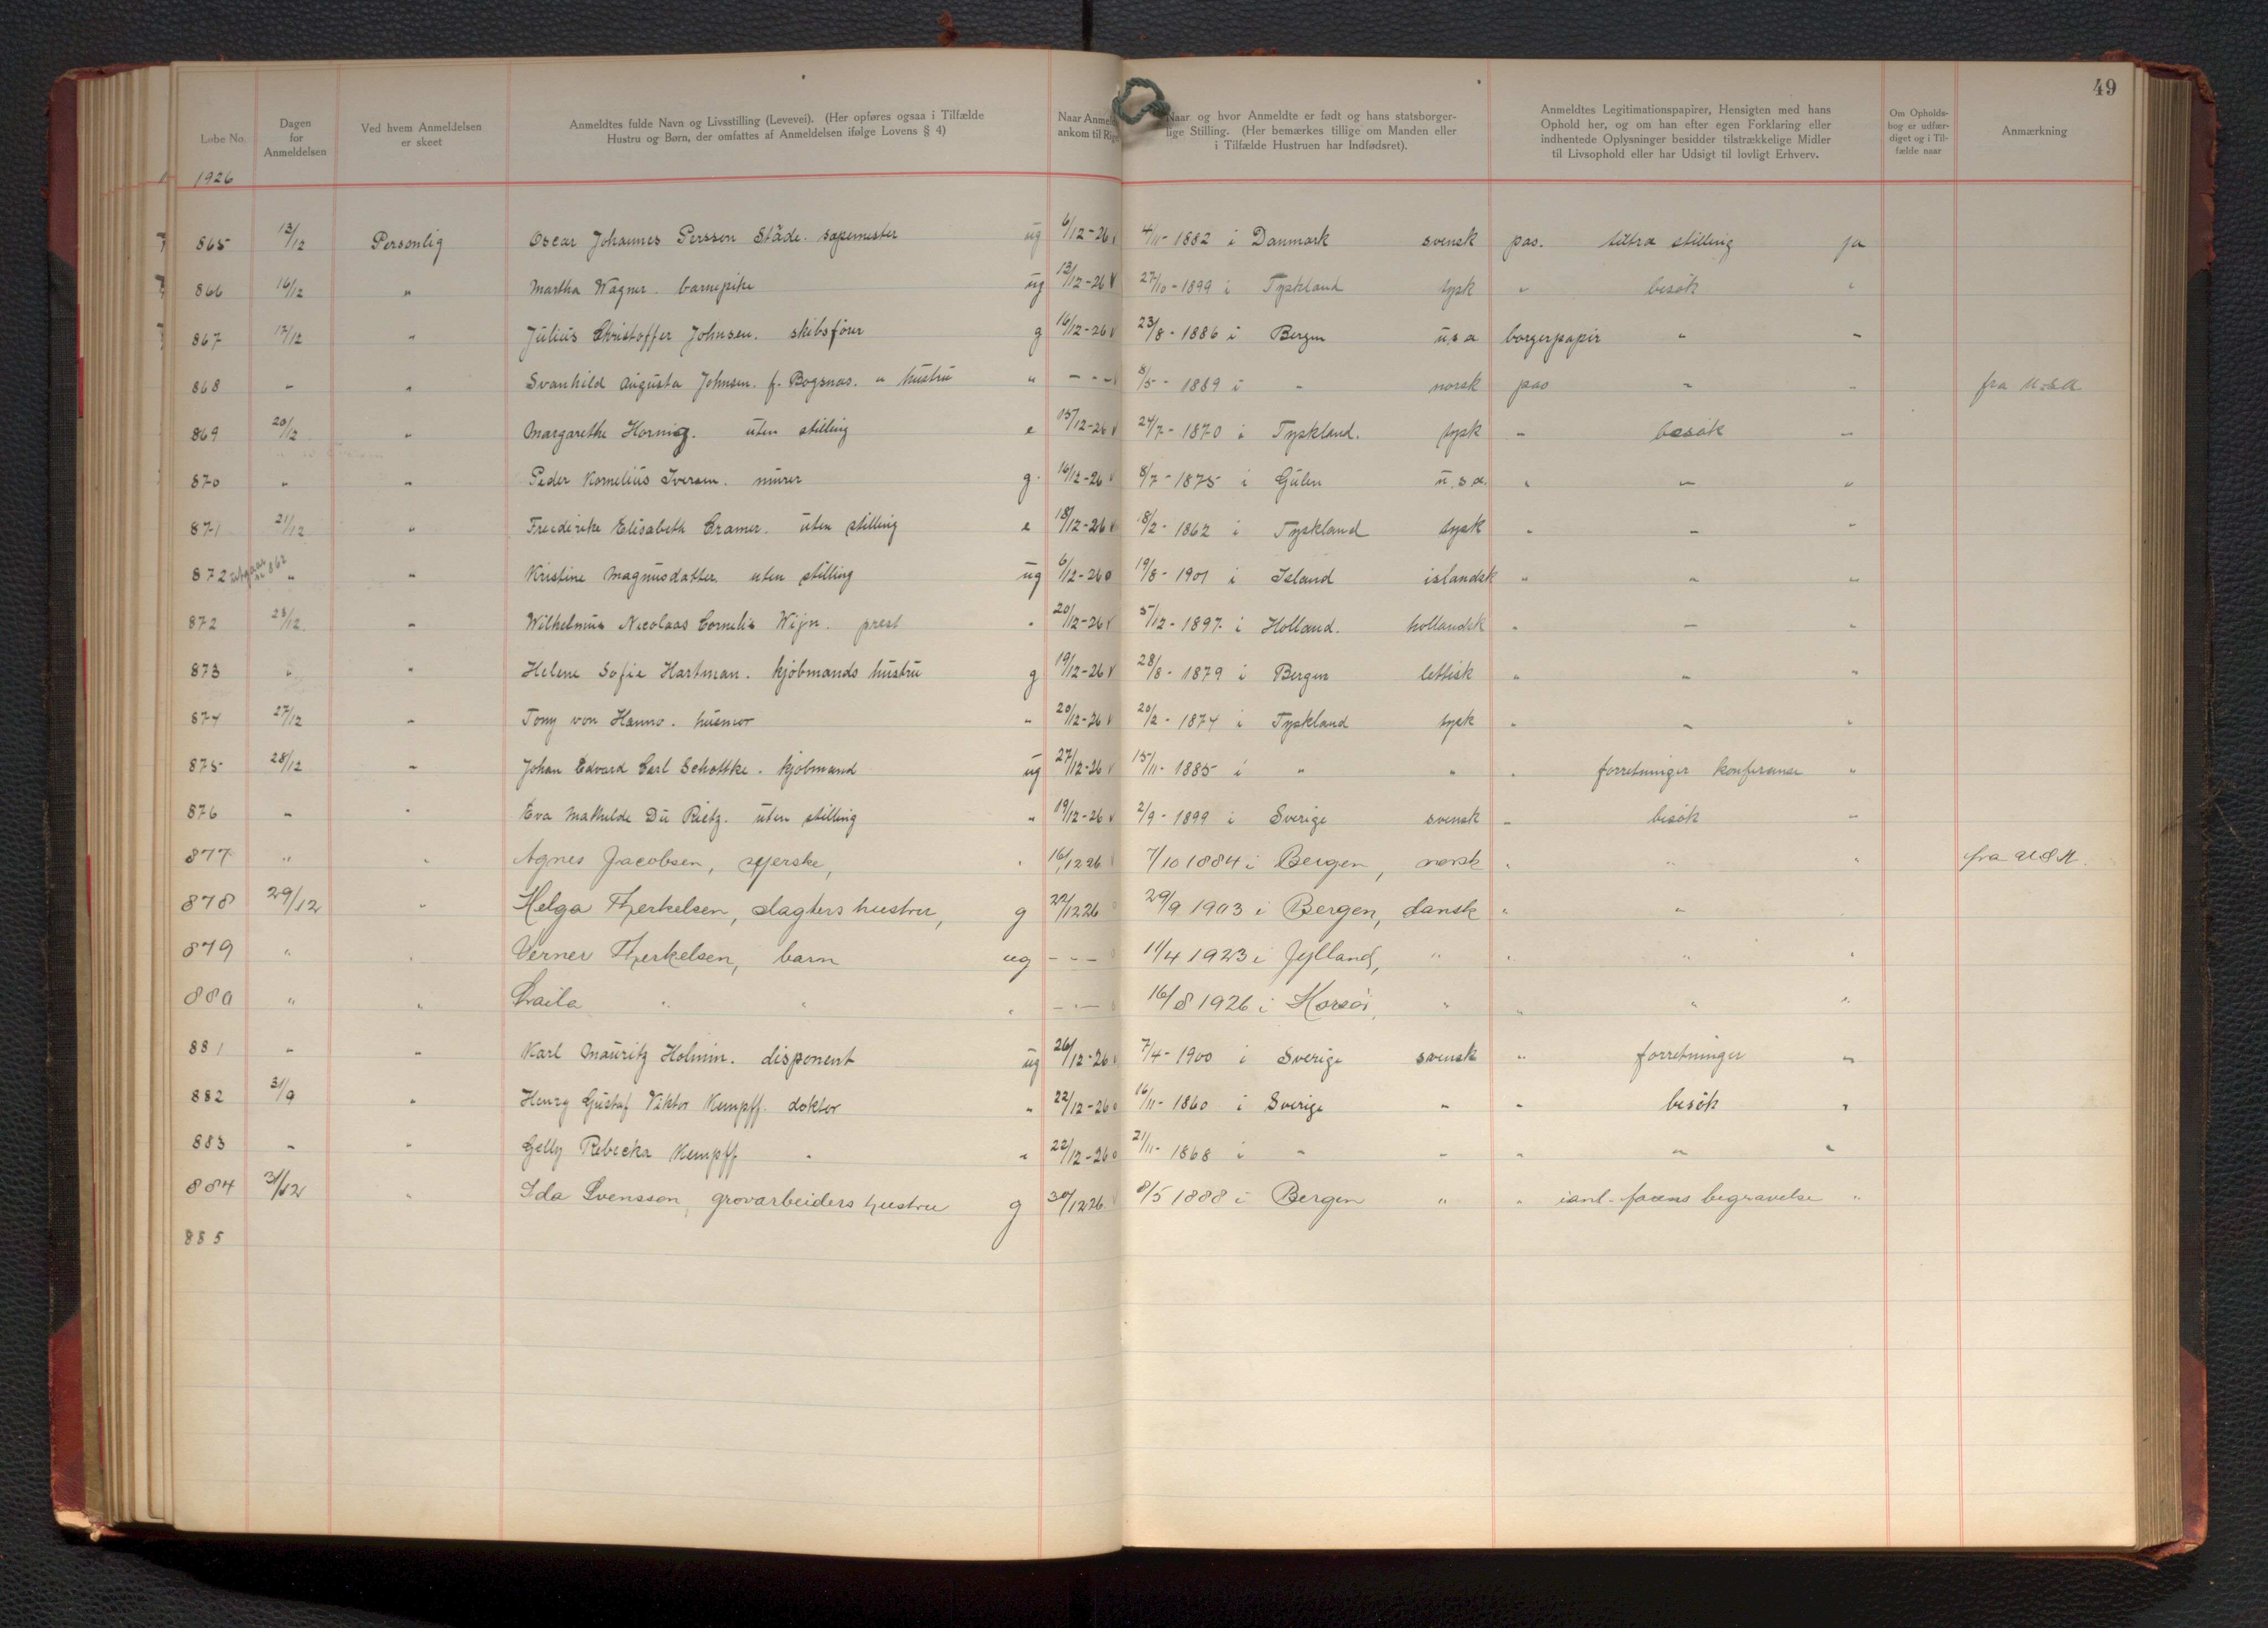 49
Løbe No.
Dagen
for
Anmeldelsen
Ved hvem Anmeldelsen
er skeet
Anmeldtes fulde Navn og Livsstilling (Levevei). (Her opføres ogsaa i Tilfælde
Hustru og Børn, der omfattes af Anmeldelsen ifølge Lovens § 4)
Naar Anmel
ankom til Rig
Naar og hvor Anmeldte er født og hans statsborger-
lige Stilling. (Her bemærkes tillige om Manden eller
i Tilfælde Hustruen har Indfødsret).
Anmeldtes Legitimationspapirer, Hensigten med hans
Ophold her, og om han efter egen Forklaring eller
indhentede Oplysninger besidder tilstrækkelige Midler
til Livsophold eller har Udsigt til lovligt Erhverv.
Om Opholds-
bog er udfær-
diget og i Til-
fælde naar
Anmærkning
1926
865 13/12 Personlig Oscar Johannes Persson Städe. sapemester ug 6/12-26 4/11-1882 i Danmark svensk pas. tiltræ stilling ja
866 16/12 " Martha Wagner. barnepike ug 13/12-26 27/10-1899 i Tyskland tysk " besök "
867 17/12 " Julius Christoffer Johnsen. skibsfører g 16/12-26 23/8-1886 i Bergen u.s.a borgerpapir " "
868 " " Svanhild Augusta Johnsen. f. Bogsnæs. " hustru " - - - 8/5-1889 i " norsk pas " " fra U.S.A.
869 20/12 " Margarethe Hornig. uten stilling e 15/12-26 24/7-1870 i Tyskland. tysk " besøk "
870 " " Peder Kornelius Iversen. murer g. 16/12-26 8/7-1875 i Gulen u.s.a. " " "
871 21/12 " Freiderike Elisabeth Cramer. uten stilling e 18/12-26 8/2-1862 i Tyskland tysk " " "
872 utgaar 862 " " Kristine Magnusdatter. uten stilling ug 6/12-26 19/8-1901 i Island islandsk " " "
872 23/12 " Wilhelmus Nicolaas Cornelis Wijn. prest " 20/12-26 5/12-1897 i Holland. hollandsk " " "
873 " " Helene Sofie Hartman. kjøbmands hustru g 19/12-26 28/8-1879 i Bergen lettisk " " "
874 27/12 " Tony von Hanno. husmor " 20/12-26 20/2-1874 i Tyskland tysk " " "
875 28/12 " Johan Edvard Carl Schottke. kjøbmand ug 27/12-26 15/11-1885 i " " " forretninger konferanse "
876 " " Eva Mathilde Du Rietz. uten stilling " 19/12-26 2/9-1899 i Sverige svensk " besök "
877 " " Agnes Jacobsen, syerske, " 16/12 26 7/10 1884 i Bergen, norsk " " " fra U.S.A.
878 29/12 " Helga Therkelsen, slagters hustru, g 22/12 26 29/9 1903 i Bergen, dansk " "
879 " " Verner Therkelsen, barn ug - - - 11/4 1923 i Jylland, " " " "
880 " " Laila " " " - - - 16/8 1926 i Korsør, " " " "
881 " " Karl Mauritz Holmin. disponent ug 26/12-26 7/4-1900 i Sverige svensk " forretninger "
882 31/9 " Henry Gustaf Viktor Kempff. doktor " 22/12-26 16/11-1860 i Sverige " " besök "
883 " " Gelly Rebecka Kempff " " 22/12-26 21/11-1868 i " " " " "
884 31/12 " Ida Svensson, grovarbeiders hustru g 30/12 26. 8/5 1888 i Bergen " " ianl. farens begravelse "
885